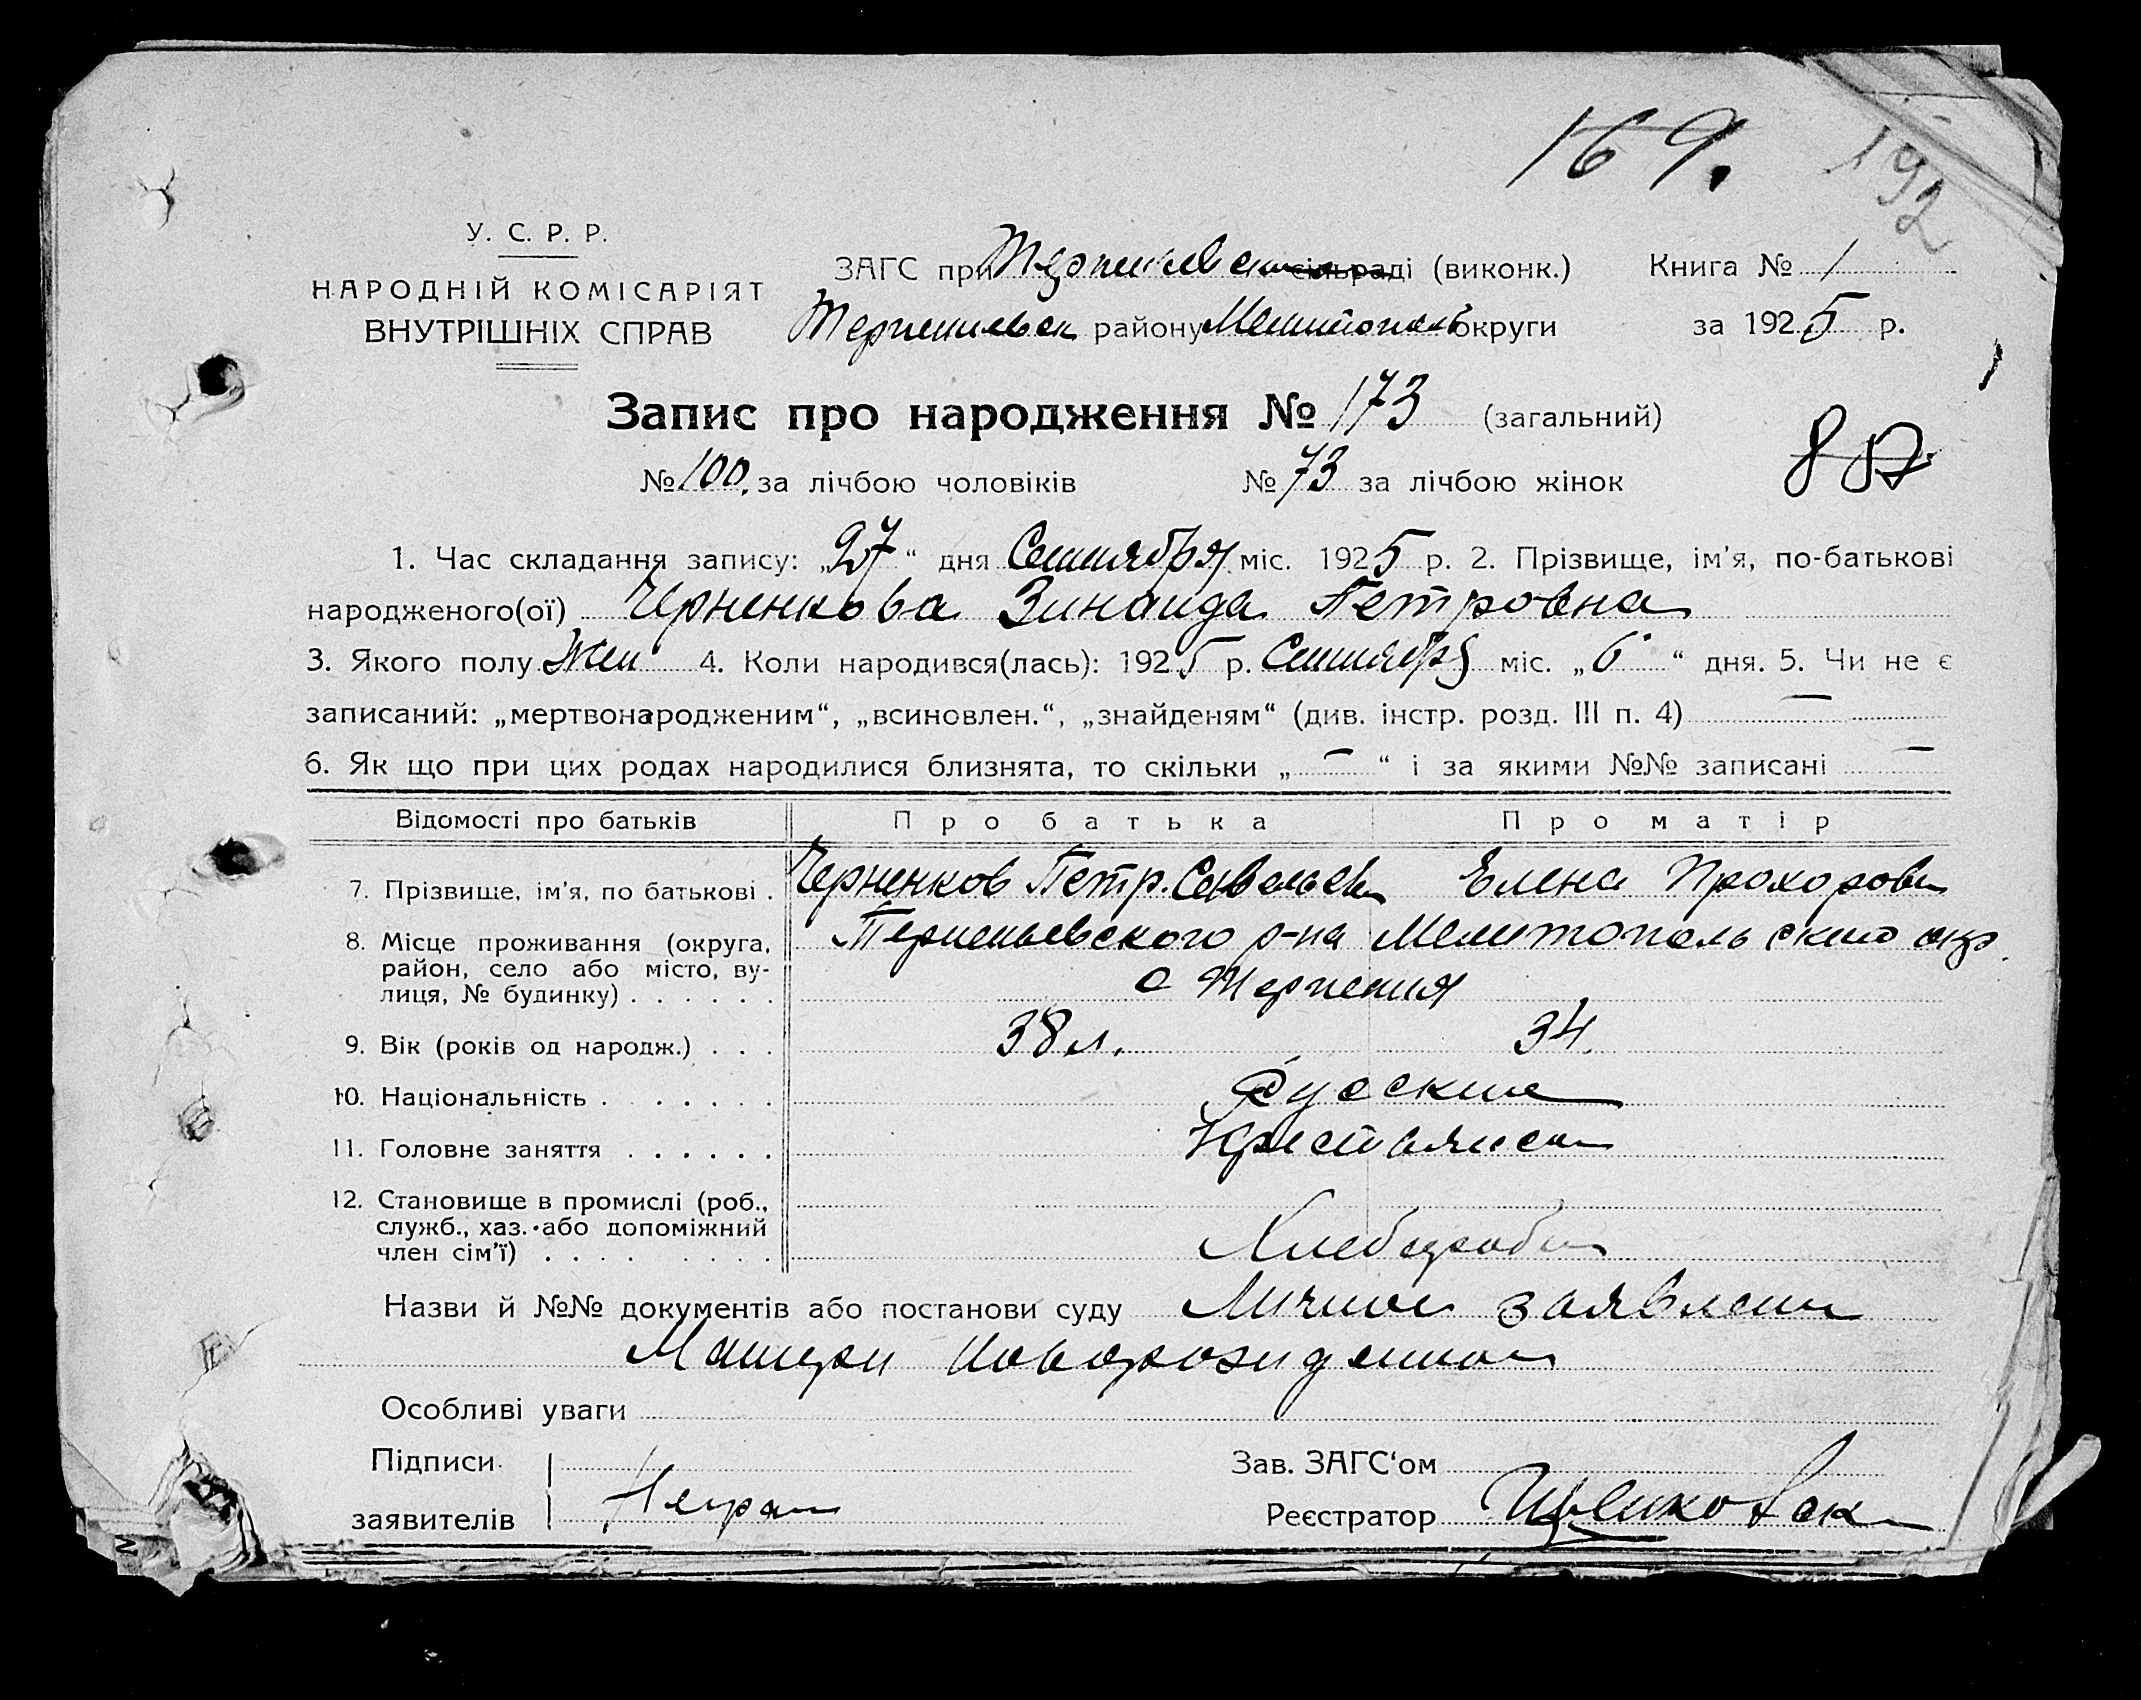 169.
192
У. С. Р. Р.
НАРОДНІЙ КОМІСАРІЯТ
ВНУТРІШНІХ СПРАВ
ЗАГС при Терпеньевском сільраді (виконк.) Книга № 1
Терпеньевск району Мелитополь округи за 1925 р.
Запис про народження № 173 (загальний)
88
№ 100. за лічбою чоловіків № 73 за лічбою жінок
1. Час складання запису: „27“ дня Сентября міс. 1925 р. 2. Прізвище, ім'я, по-батькові
народженого(ої) Черненкова Зинаида Петровна
3. Якого полу Жен 4. Коли народився(лась): 1925 р. Сентября міс. „6“ дня. 5. Чи не є
записаний: „мертвонародженим“, „всиновлен.“, „знайденям“ (див. інстр. розд. III п. 4) —
6. Як що при цих родах народилися близнята, то скільки „—“ і за якими №№ записані —
Відомості про батьків Про батька Про матір
7. Прізвище, ім'я, по батькові . Черненков Петр. Савельев Елена Прохоровн
8. Місце проживання (округа, Терпеньевского р-на Мелитопольского окр.
район, село або місто, ву- с Терпения
лиця, № будинку) . . . . . .
9. Вік (років од народж.) . . . 38 л. 34.
10. Національність . . . . . . Русские
11. Головне заняття . . . . . . Крестьянск
12. Становище в промислі (роб.,
служб., хаз. або допоміжний
член сім'ї) . . . . . . . . Хлебороб
Назви й №№ документів або постанови суду Личное заявлени
Матери новорожденной
Особливі уваги
Підписи Зав. ЗАГС‘ом
заявителів Неграм Реєстратор